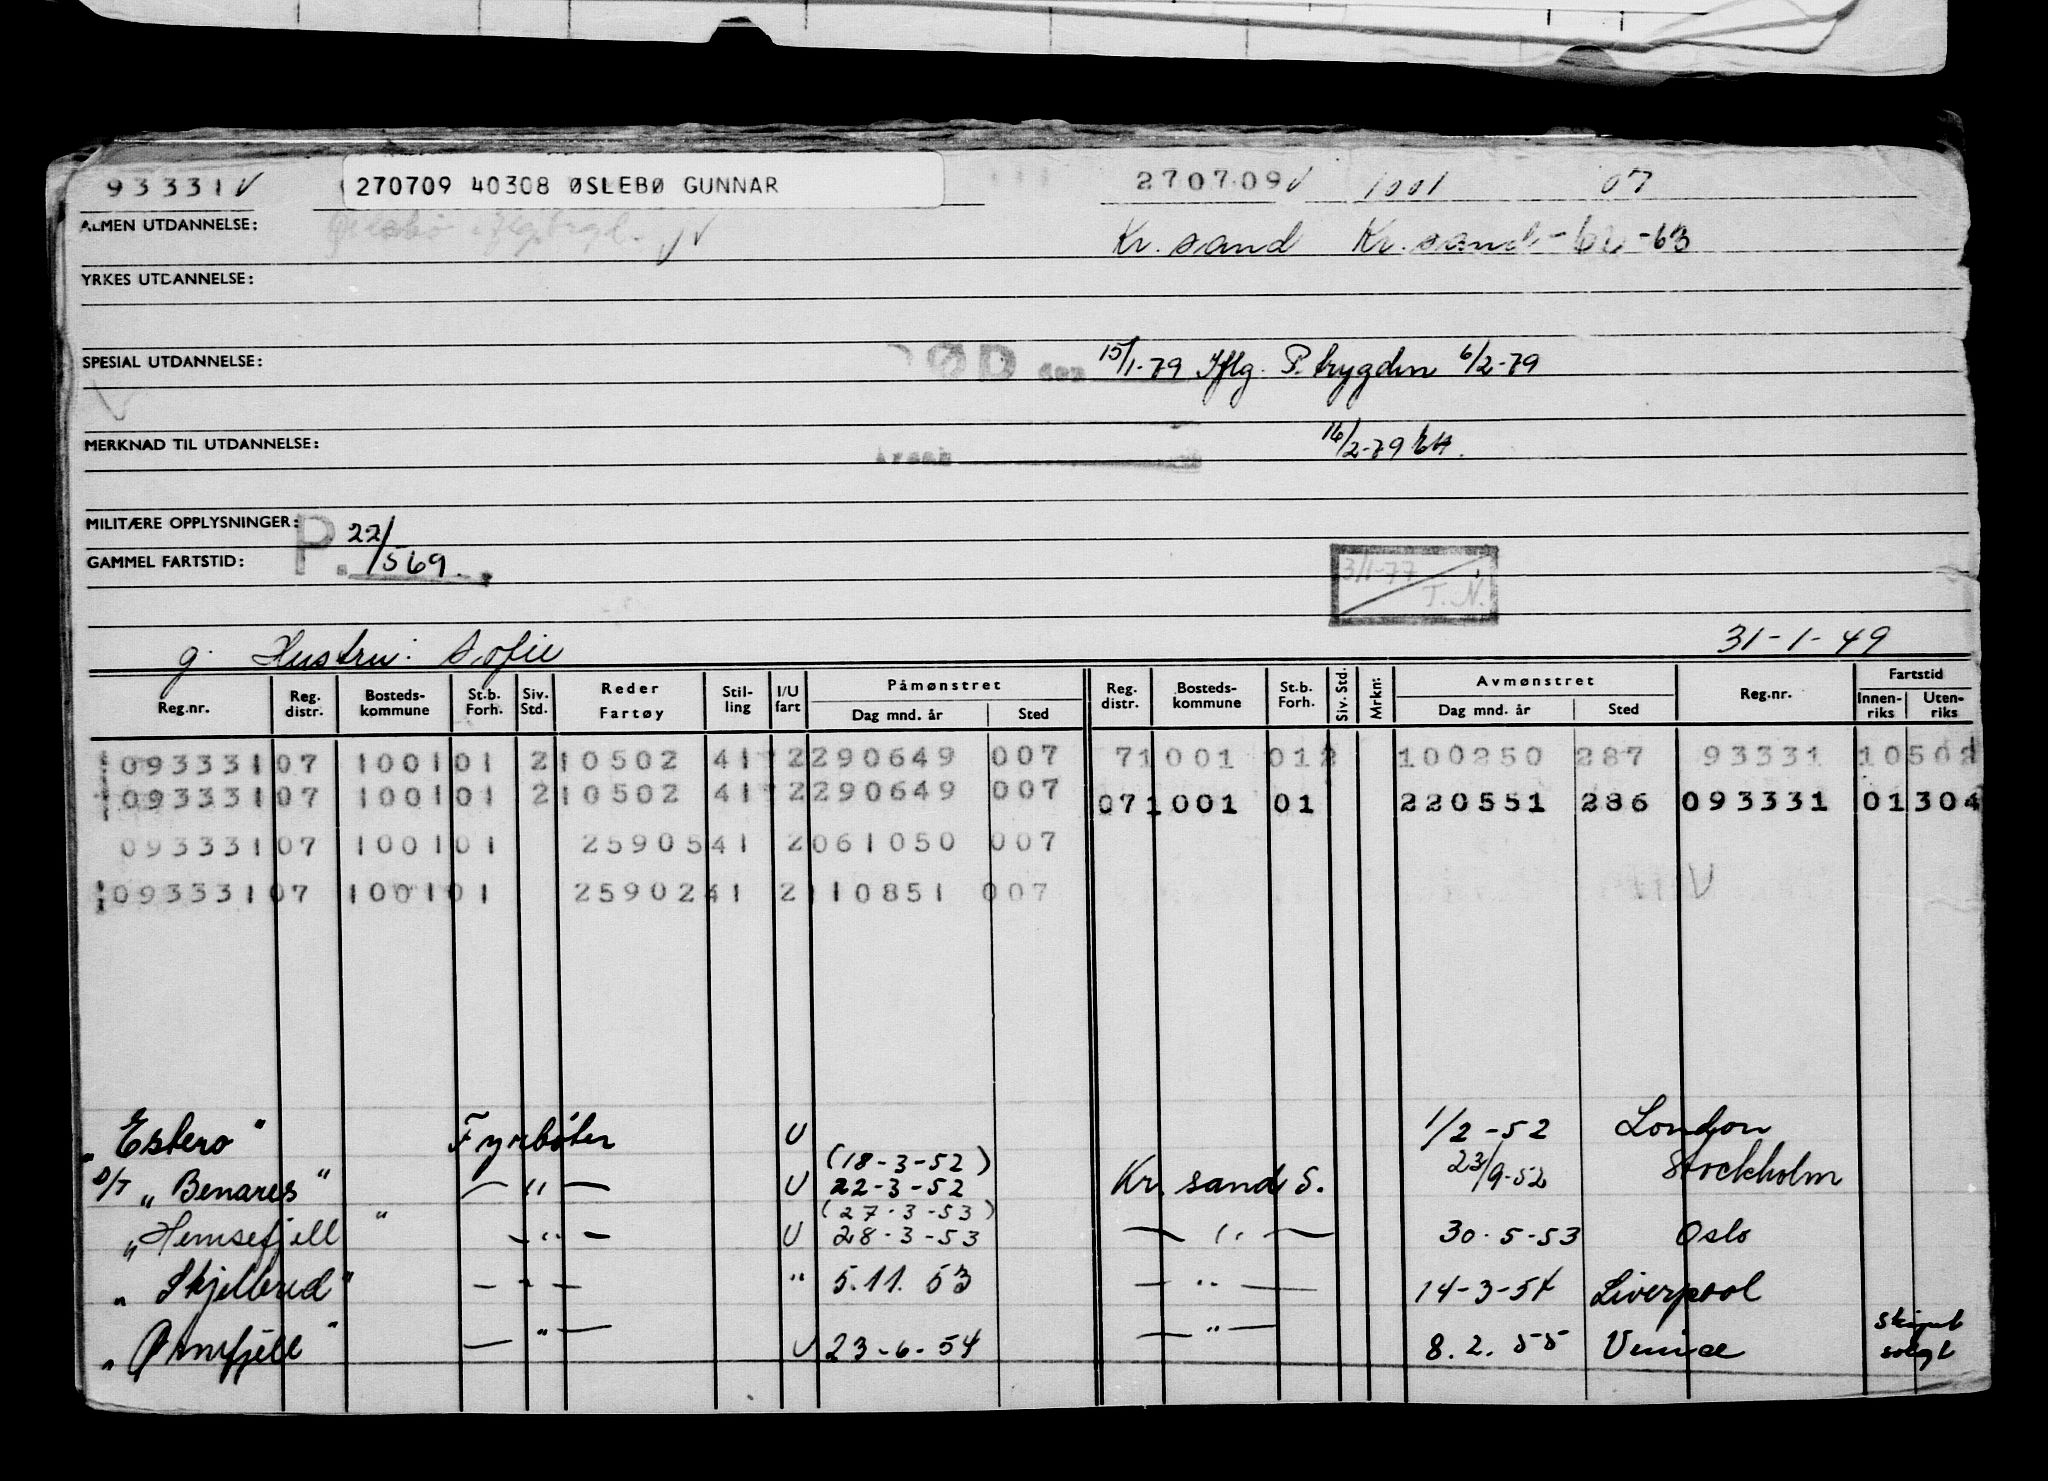 93331 V 270709 40308 ØSLEBØ GUNNAR 270709 V 1001 07
ALMEN UTDANNELSE: Kr. sand Kr. sand -63
YRKES UTDANNELSE:
SPESIAL UTDANNELSE: ØD den 15/1-79 Iflg. P. trygden 6/2-79
MERKNAD TIL UTDANNELSE: 16/2-79
MILITÆRE OPPLYSNINGER: P. 22/569.
GAMMEL FARTSTID: 3/1-77 T.N.
g. Hustru: Sofie 31-1-49
Reg.nr. Reg. distr. Bosteds-kommune St.b. Forh. Siv. Std. Reder Fartøy Stil-ling I/U fart Påmønstret Dag mnd. år Sted Reg. distr. Bosteds-kommune St.b. Forh. Siv. Std. Mrkn: Avmønstret Dag mnd. år Sted Reg.nr. Fartstid Innen-riks Uten-riks
093331 07 1001 01 2 10502 41 2 290649 007 7 1001 01 2 100250 287 93331 10502
093331 07 1001 01 2 10502 41 2 290649 007 07 1001 01 220551 286 093331 01304
093331 07 1001 01 25905 41 2 061050 007
093331 07 1001 01 25902 41 2 110851 007
"Estero" Fyrbøter U 1/2-52 London
(18-3-52)
D/T "Benares" — " — U 22-3-52 Kr. sand S. 23/9-52 Stockholm
(27-3-53)
"Hemsefjell" — " — U 28-3-53 — " — 30-5-53 Oslo
"Skjelbred" — " — " 5.11.53 — " — 14-3-54 Liverpool
"Ørnefjell" — " — U 23-6-54 — " — 8.2.55 Venice Skipet solgt